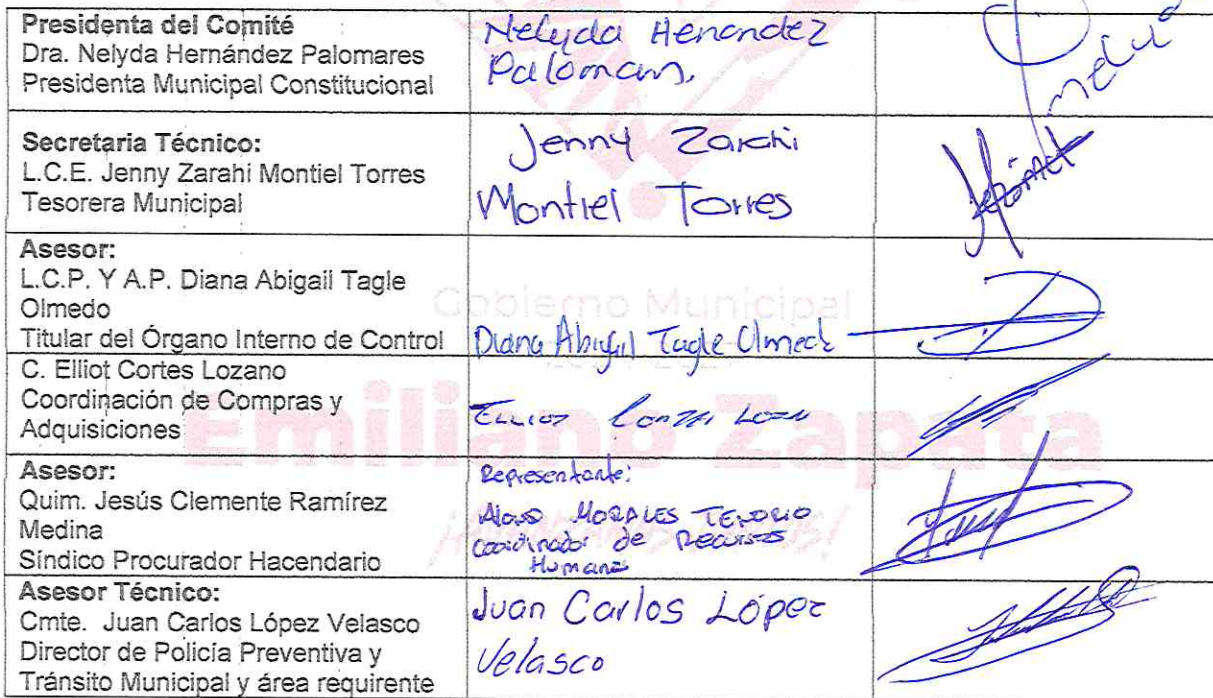 Presidenta del Comité
Dra. Nelyda Hernández Palomares
Presidenta Municipal Constitucional
Nelyda Henandez
Palomares.
Secretaria Técnico:
L.C.E. Jenny Zarahi Montiel Torres
Tesorera Municipal
Jenny Zarahi
Montiel Torres
Asesor:
L.C.P. Y A.P. Diana Abigail Tagle
Olmedo
Titular del Órgano Interno de Control
Diana Abigail Tagle Olmedo
Gobierno Municipal
C. Elliot Cortes Lozano
Coordinación de Compras y
Adquisiciones
Elliot
Emiliano Zapata
Asesor:
Quim. Jesús Clemente Ramírez
Medina
Síndico Procurador Hacendario
Representante:
MORALES TENORIO
Coordinador de Recursos
Humanos
Asesor Técnico:
Cmte. Juan Carlos López Velasco
Director de Policía Preventiva y
Tránsito Municipal y área requirente
Juan Carlos López
Velasco